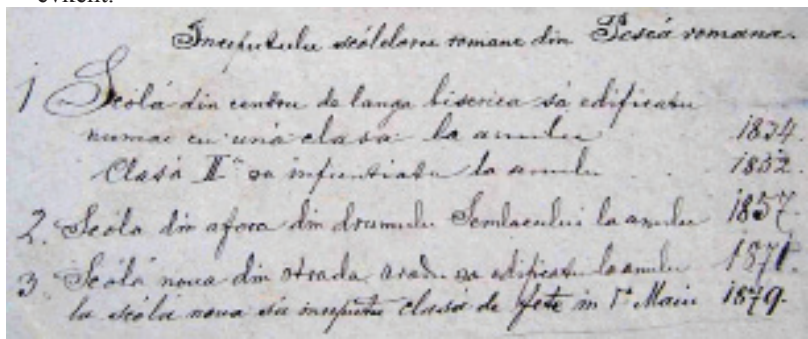 evident.
Inceputulu scóleloru romane din Pesca romana.
1 Scóla din centru de langa biserica sá edificatu
numai cu una clasa la anulu 1834.
Clasá II ͣ sa infientiatu la anulu 1852.
2. Scóla din afora din drumulu Semlacului la anulu 1857.
3. Scólá noua din strada aradu sa edificatu la anulu 1871.
la scólá noua sá inceputu clasa de fete in 1 ͣ Maiu 1879.